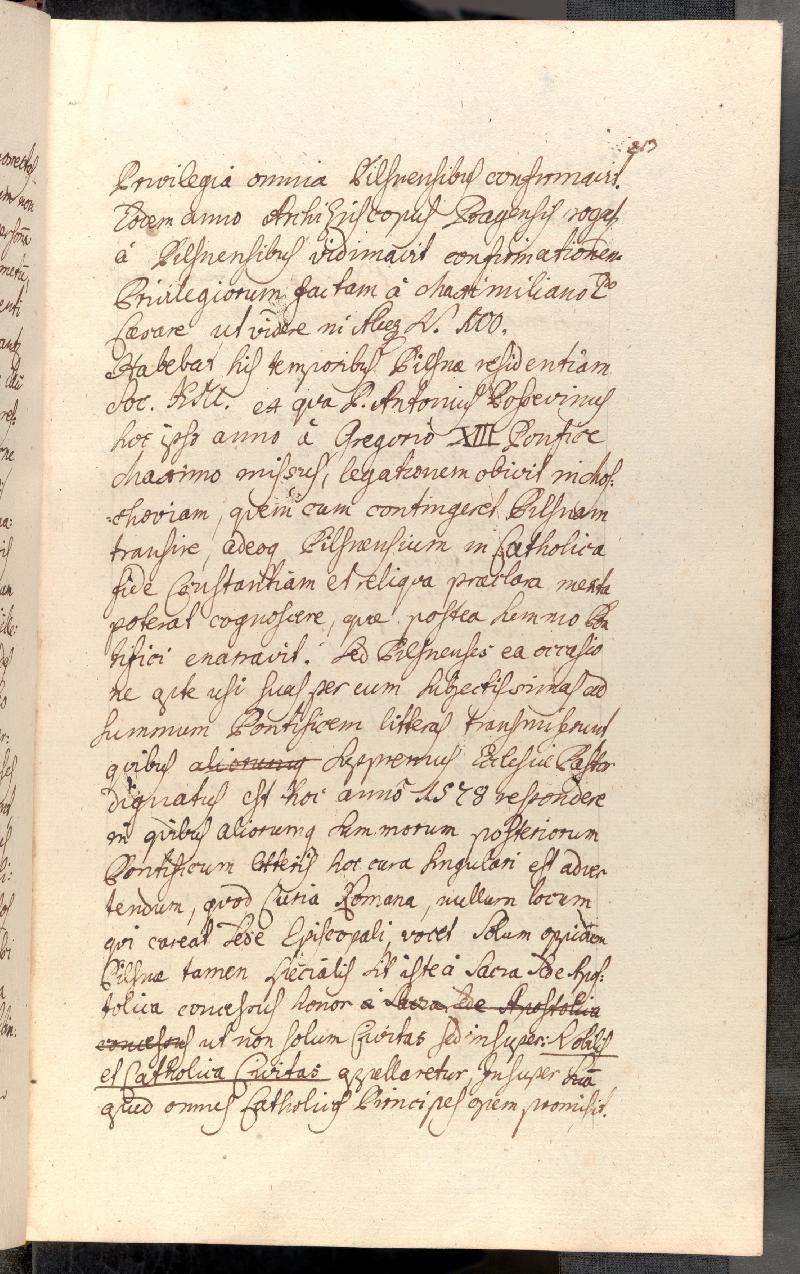 Privilegia omnia Pilsnensibus confirmavit.
Eodem anno Archi Episcopus Pragensis rogat,
à Pilsnensibus vidimavit confirmationem
Privilegiorum factam à Maximiliano 2do
Cæsare ut videre in N.
Habebat his temporibus Pilsnæ residentiam
Soc. ex qva P. Antonius Possevinus
hoc ipso anno à Gregorio XIII Pontifice
Maximo missus, legationem obivit in Mos:
=choviam, quem cum contingeret Pilsnam
transire, adeoq Pilsnensium in Catholica
fide Constantiam et reliqva præclara merita
poterat cognoscere, quæ postea summo Pon
tifici enarravit. Sed Pilsnenses ea occasio
ne apte usi suas per eum subjectissimas ad
summum Pontificem litteras transmiserunt
qvibus aliorumq suppremus Ecclesiæ Pastor
dignatus est hoc anno 1578 respondere
in qvibus aliorumq summorum posteriorum
Pontificum litteris hoc cura singulari est adver
tendum, qvod Curia Romana, nullum locum
qvi careat Sede Episcopali, vocet solum oppidum
Pilsnæ tamen specialis sit iste à Sacra Sede Apos:
tolica concessus honor à Sacra Sede Apostolica
concessus ut non solum Civitas sed insuper: Nobilis
et Catholica Civitas appellaretur, Insuper
quod omnes Catholicos Principes opem promisit.